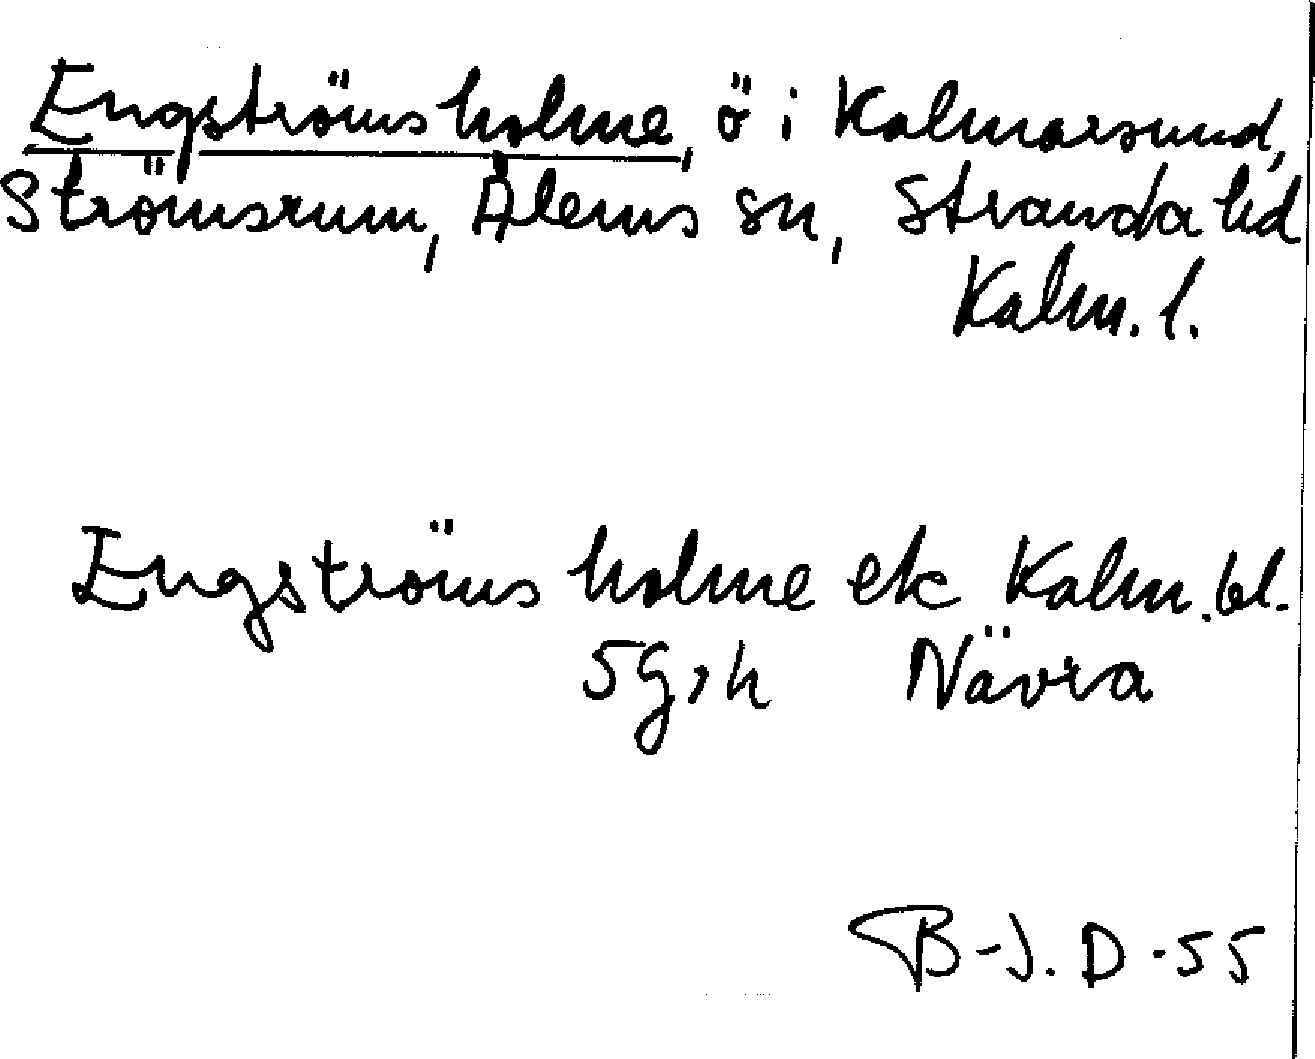 Engströms holme, ö i Kalmarsund,
Strömsrum, Ålems sn, Stranda hd
Kalm. l.
Engströms holme ek Kalm. bl.
5g, h Nävra
B-J. D -55